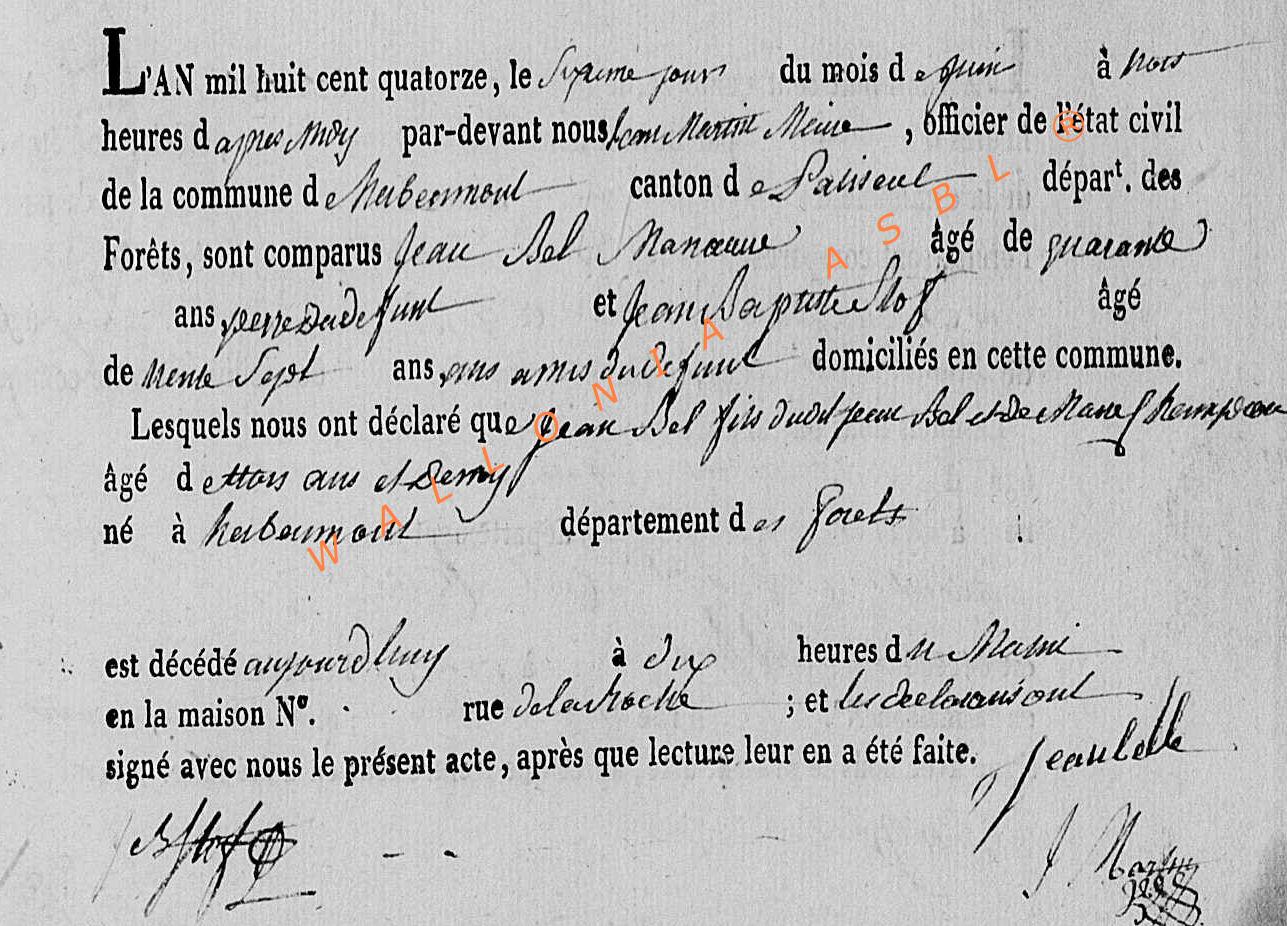 L'AN mil huit cent quatorze, le Sixieme jour du mois de juin à trois
heures d apres Midy par-devant nous jean Martin Meine, officier de l'état civil
de la commune de herbeumont canton de Paliseul dépar.t des
Forêts, sont comparus Jean Bel Manoeuvre âgé de quarante
ans, pere du defunt et Jean Baptiste Slof âgé
de trente Sept ans, amis du defunt domiciliés en cette commune.
Lesquels nous ont déclaré que jean Bel fils dudit jean Bel et de Marie
âgé de trois ans et Demy
né à herbeumont département des forets
est décédé aujourdhuy à dix heures du Matin
en la maison N°. rue de la Roche ; et les declarans ont
signé avec nous le présent acte, après que lecture leur en a été faite. Jean belle
J Martin
WALLONIA ASBL ®